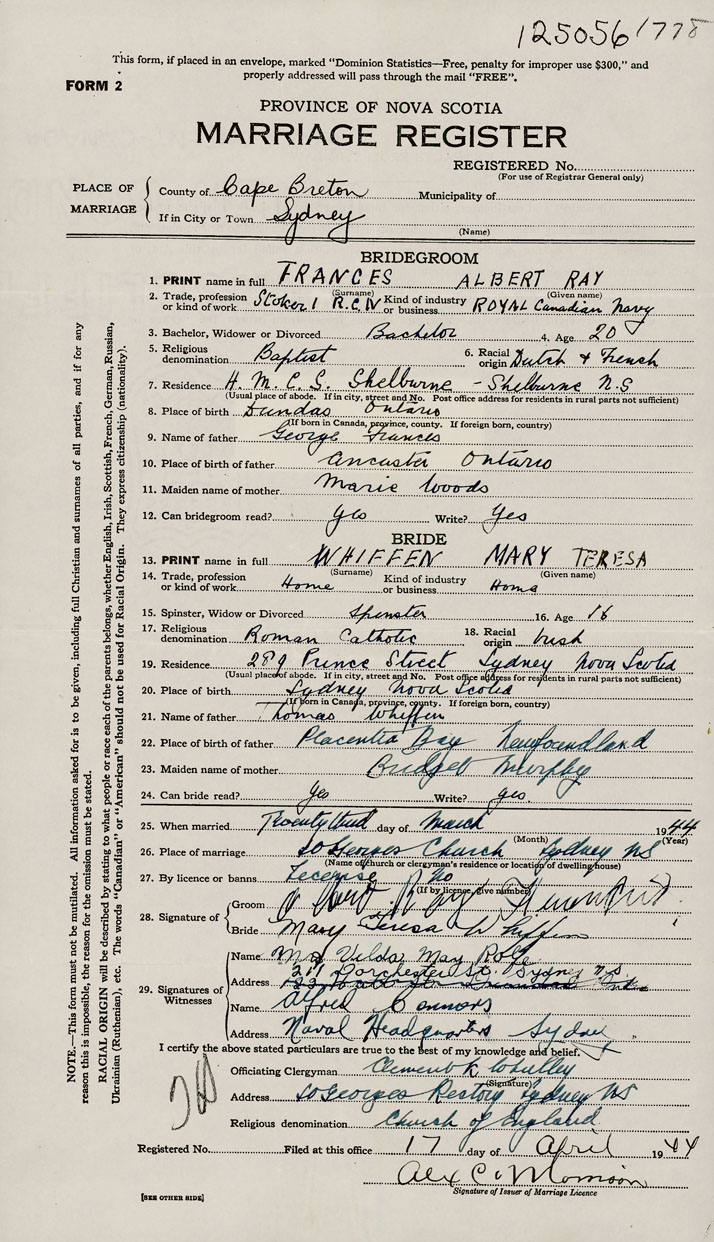 125056 1778
This form, if placed in an envelope, marked "Dominion Statistics—Free, penalty for improper use $300," and
properly addressed will pass through the mail "FREE".
FORM 2
PROVINCE OF NOVA SCOTIA
MARRIAGE REGISTER
REGISTERED No.
(For use of Registrar General only)
PLACE OF MARRIAGE
County of Cape Breton Municipality of
If in City or Town Sydney
(Name)
BRIDEGROOM
1. PRINT name in full FRANCES ALBERT RAY
(Surname) (Given name)
2. Trade, profession or kind of work Stoker 1 R.C.N Kind of industry or business ROYAL Canadian Navy
3. Bachelor, Widower or Divorced Bachelor 4. Age 20
5. Religious denomination Baptist 6. Racial origin Dutch & French
7. Residence H. M. C. S. Shelburne - Shelburne N.S
(Usual place of abode. If in city, street and No. Post office address for residents in rural parts not sufficient)
8. Place of birth Dundas Ontario
(If born in Canada, province, county. If foreign born, country)
9. Name of father George Frances
10. Place of birth of father Ancaster Ontario
11. Maiden name of mother Marie Woods
12. Can bridegroom read? Yes Write? Yes
BRIDE
13. PRINT name in full WHIFFEN MARY TERESA
(Surname) (Given name)
14. Trade, profession or kind of work Home Kind of industry or business Home
15. Spinster, Widow or Divorced Spinster 16. Age 18
17. Religious denomination Roman Catholic 18. Racial origin Irish
19. Residence 289 Prince Street Sydney Nova Scotia
(Usual place of abode. If in city, street and No. Post office address for residents in rural parts not sufficient)
20. Place of birth Sydney Nova Scotia
(If born in Canada, province, county. If foreign born, country)
21. Name of father Thomas Whiffen
22. Place of birth of father Placentia Bay Newfoundland
23. Maiden name of mother Bridget Murphy
24. Can bride read? Yes Write? yes.
25. When married Twenty third day of March 1944
(Month) (Year)
26. Place of marriage St Georges Church Sydney NS
(Name of church or clergyman's residence or location of dwelling house)
27. By licence or banns License No
(If by licence, give number)
28. Signature of
Groom Albert Ray
Bride Mary Teresa Whiffen
29. Signatures of Witnesses
Name Mrs Velda May Rolfe
Address 211 Dorchester St. Sydney N.S.
Name Alfred Connors
Address Naval Headquarters Sydney
I certify the above stated particulars are true to the best of my knowledge and belief.
Officiating Clergyman Clement K Whalley
(Signature)
Address St Georges Rectory Sydney NS
Religious denomination Church of England
Registered No. Filed at this office 17 day of April 1944
Alex C. Morrison
Signature of Issuer of Marriage Licence
[SEE OTHER SIDE]
NOTE.—This form must not be mutilated. All information asked for is to be given, including full Christian and surnames of all parties, and if for any
reason this is impossible, the reason for the omission must be stated.
RACIAL ORIGIN will be described by stating to what people or race each of the parents belongs, whether English, Irish, Scottish, French, German, Russian,
Ukrainian (Ruthenian), etc. The words "Canadian" or "American" should not be used for Racial Origin. They express citizenship (nationality).